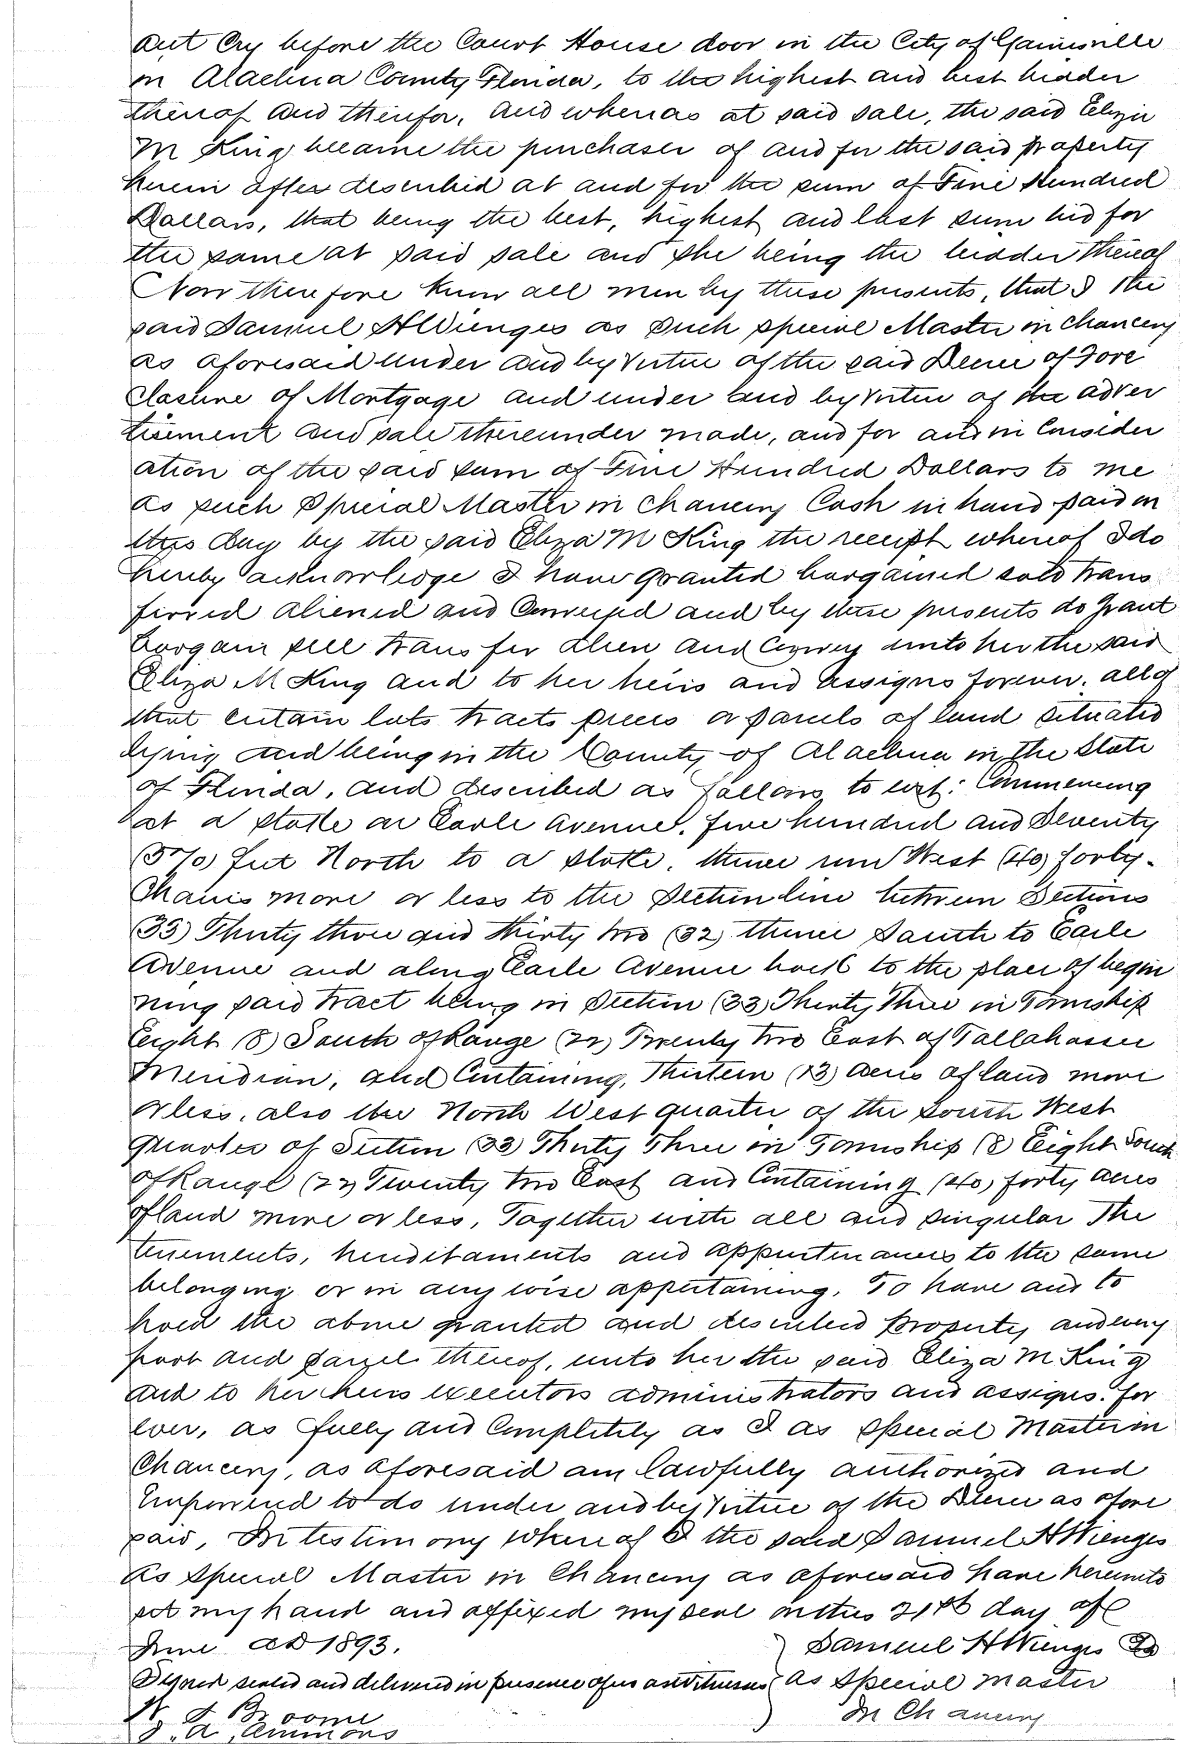 out Cry before the Court House door in the City of Gainesville
in Alachua County Florida, to the highest and best bidder
thereof and therefor, and whereas at said sale, the said Eliza
M King became the purchaser of and for the said property
herein after described at and for the sum of Five Hundred
Dollars, that being the best, highest and last sum bid for
the same at said sale and she being the bidder thereof
Now therefore Know all men by these presents, that I the
said Samuel H Wienges as such special Master in chancery
as aforesaid under and by virtue of the said Decree of Fore
closure of Mortgage and under and by virtue of the adver
tisement and sale thereunder made, and for and in Consider
ation of the said sum of Five Hundred Dollars to me
as such Special Master in Chancery Cash in hand paid on
this day by the said Eliza M King the receipt whereof I do
hereby acknowledge I have granted bargained sold trans
ferred aliened and Conveyed and by these presents do grant
bargain sell transfer alien and Convey unto her the said
Eliza M King and to her heirs and assigns forever. all of
that certain lots tracts pieces or parcels of land situated
lying and being in the County of Alachua in the State
of Florida, and described as follows to wit: Commencing
at a stake on Earle Avenue, five hundred and Seventy
(570) feet North to a stake, thence run West (40) forty-
Chains more or less to the Section line between Sections
(33) Thirty three and thirty two (32) thence South to Earle
Avenue and along Earle Avenue back to the place of begin
ning said tract being in Section (33) Thirty Three in Township
Eight (8) South of Range (22) Twenty two East of Tallahassee
Meridian, and Containing, Thirteen (13) acres of land more
or less, also the North West quarter of the South West
quarter of Section (33) Thirty Three in Township (8) Eight South
of Range (22) Twenty two East and Containing (40) forty acres
of land more or less, Together with all and singular The
tenements, hereditaments and appurtenances to the same
belonging or in any wise appertaining. To have and to
hold the above granted and described property and every
part and parcel thereof, unto her the said Eliza M King
and to her heirs executors administrators and assigns. for
ever, as fully and Completely as I as special Master in
Chancery, as aforesaid am lawfully authorized and
Empowered to do under and by virtue of the Decree as afore
said, In testimony whereof I the said Samuel H Wienges
As special Master in Chancery as aforesaid have hereunto
set my hand and affixed my seal on this 21st day of
June AD 1893.
Samuel H Wienges
Signed sealed and delivered in presence of us as witnesses
as Special Master
In Chancery
Broome
Ammons